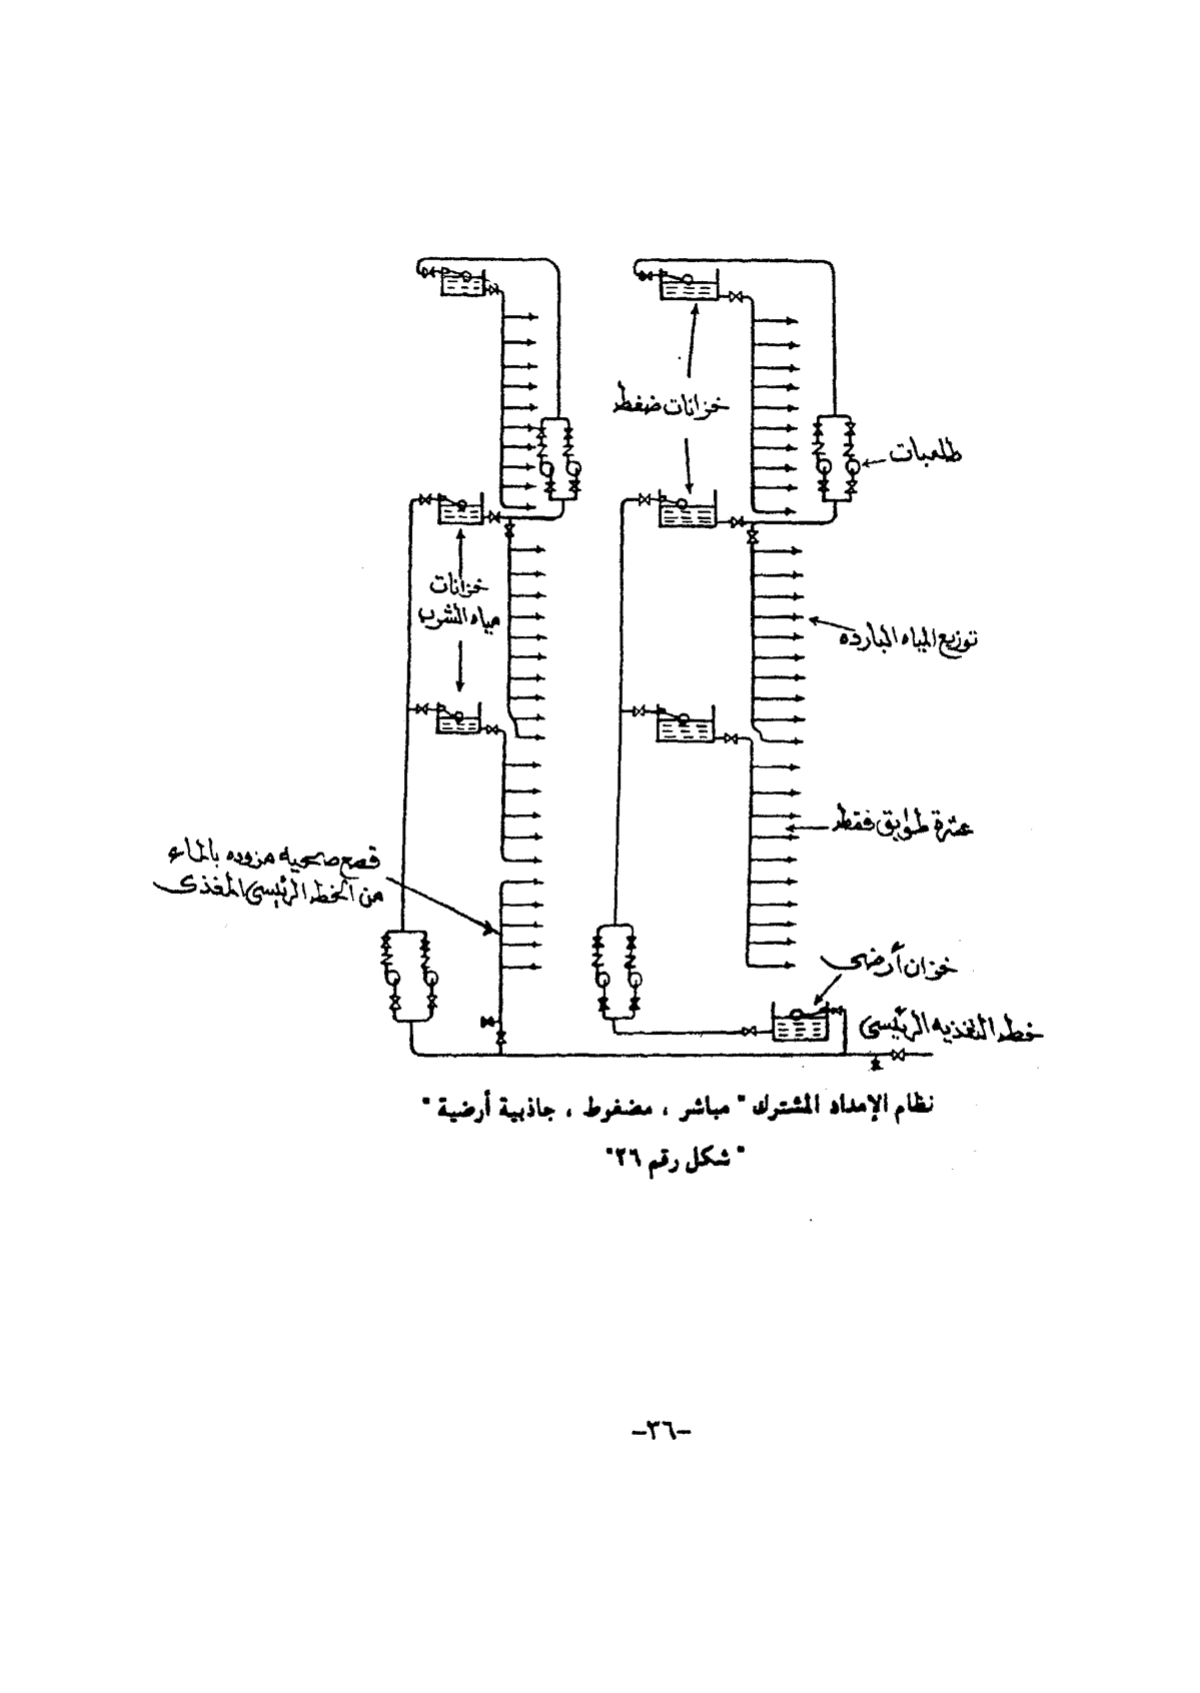 خزانات ضغط
طلمبات
خزانات
مياه الشرب
توزيع المياه البارده
عشرة طوابق فقط
قطع صحيه مزوده بالماء
من الخط الرئيسى المغذى
خزان أرضى
خط التغذيه الرئيسى
نظام الإمداد المشترك " مباشر ، مضغوط ، جاذبية أرضية "
" شكل رقم ٢٦"
-٣٦-